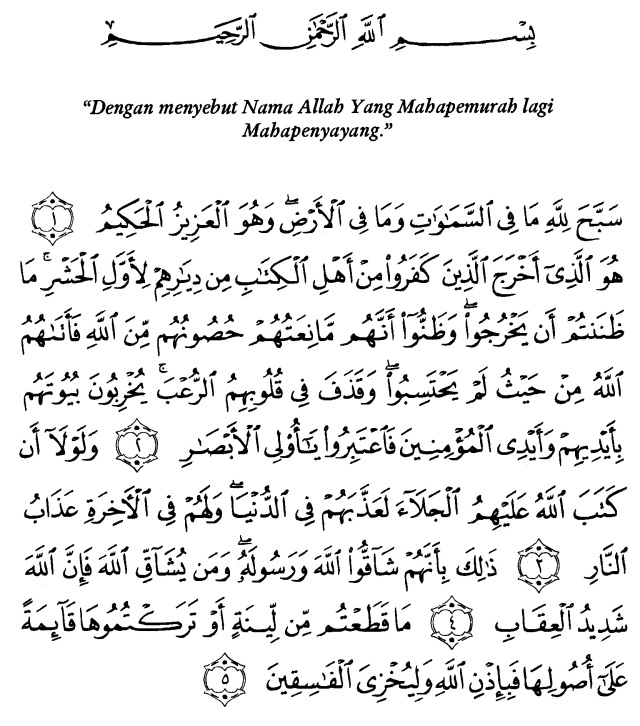 بِسْمِ اللَّهِ الرَّحْمَٰنِ الرَّحِيمِ
“Dengan menyebut Nama Allah Yang Mahapemurah lagi
Mahapenyayang.”
سَبَّحَ لِلَّهِ مَا فِى ٱلسَّمَٰوَٰتِ وَمَا فِى ٱلْأَرْضِۖ وَهُوَ ٱلْعَزِيزُ ٱلْحَكِيمُ ١
هُوَ ٱلَّذِىٓ أَخْرَجَ ٱلَّذِينَ كَفَرُوا۟ مِنْ أَهْلِ ٱلْكِتَٰبِ مِن دِيَٰرِهِمْ لِأَوَّلِ ٱلْحَشْرِۚ مَا
ظَنَنتُمْ أَن يَخْرُجُوا۟ۖ وَظَنُّوٓا۟ أَنَّهُم مَّانِعَتُهُمْ حُصُونُهُم مِّنَ ٱللَّهِ فَأَتَىٰهُمُ
ٱللَّهُ مِنْ حَيْثُ لَمْ يَحْتَسِبُوا۟ۖ وَقَذَفَ فِى قُلُوبِهِمُ ٱلرُّعْبَۚ يُخْرِبُونَ بُيُوتَهُم
بِأَيْدِيهِمْ وَأَيْدِى ٱلْمُؤْمِنِينَ فَٱعْتَبِرُوا۟ يَٰٓأُو۟لِى ٱلْأَبْصَٰرِ ٢ وَلَوْلَآ أَن
كَتَبَ ٱللَّهُ عَلَيْهِمُ ٱلْجَلَآءَ لَعَذَّبَهُمْ فِى ٱلدُّنْيَاۖ وَلَهُمْ فِى ٱلْءَاخِرَةِ عَذَابُ
ٱلنَّارِ ٣ ذَٰلِكَ بِأَنَّهُمْ شَآقُّوا۟ ٱللَّهَ وَرَسُولَهُۥۖ وَمَن يُشَآقِّ ٱللَّهَ فَإِنَّ ٱللَّهَ
شَدِيدُ ٱلْعِقَابِ ٤ مَا قَطَعْتُم مِّن لِّينَةٍ أَوْ تَرَكْتُمُوهَا قَآئِمَةً
عَلَىٰٓ أُصُولِهَا فَبِإِذْنِ ٱللَّهِ وَلِيُخْزِىَ ٱلْفَٰسِقِينَ ٥